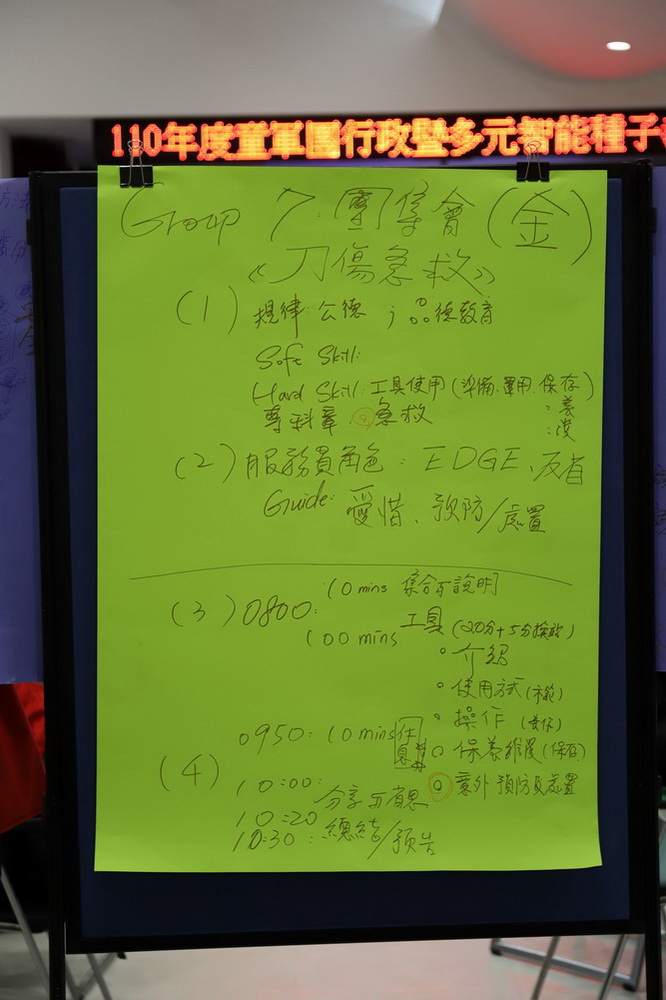 110年度童軍團行政暨多元智能種子
Group 7. 團集會 (金)
《刀傷急救》
(1) 規律: 公德 ; 品德教育
Soft Skill:
Hard Skill: 工具使用 (準備、運用、保存)
專科章: 急救
:養
:護
(2) 服務員角色: EDGE、反省
Guide: 愛惜、預防/處置
(3) 0800: 10 mins 集合與說明
100 mins 工具 (20分+5分換站)
• 介紹
• 使用方式 (示範)
• 操作 (實作)
• 保養維護 (保存)
• 意外預防與處置
0950: 10 mins 休息
(4) 10:00: 分享與省思
10:20
10:30: 總結/預告